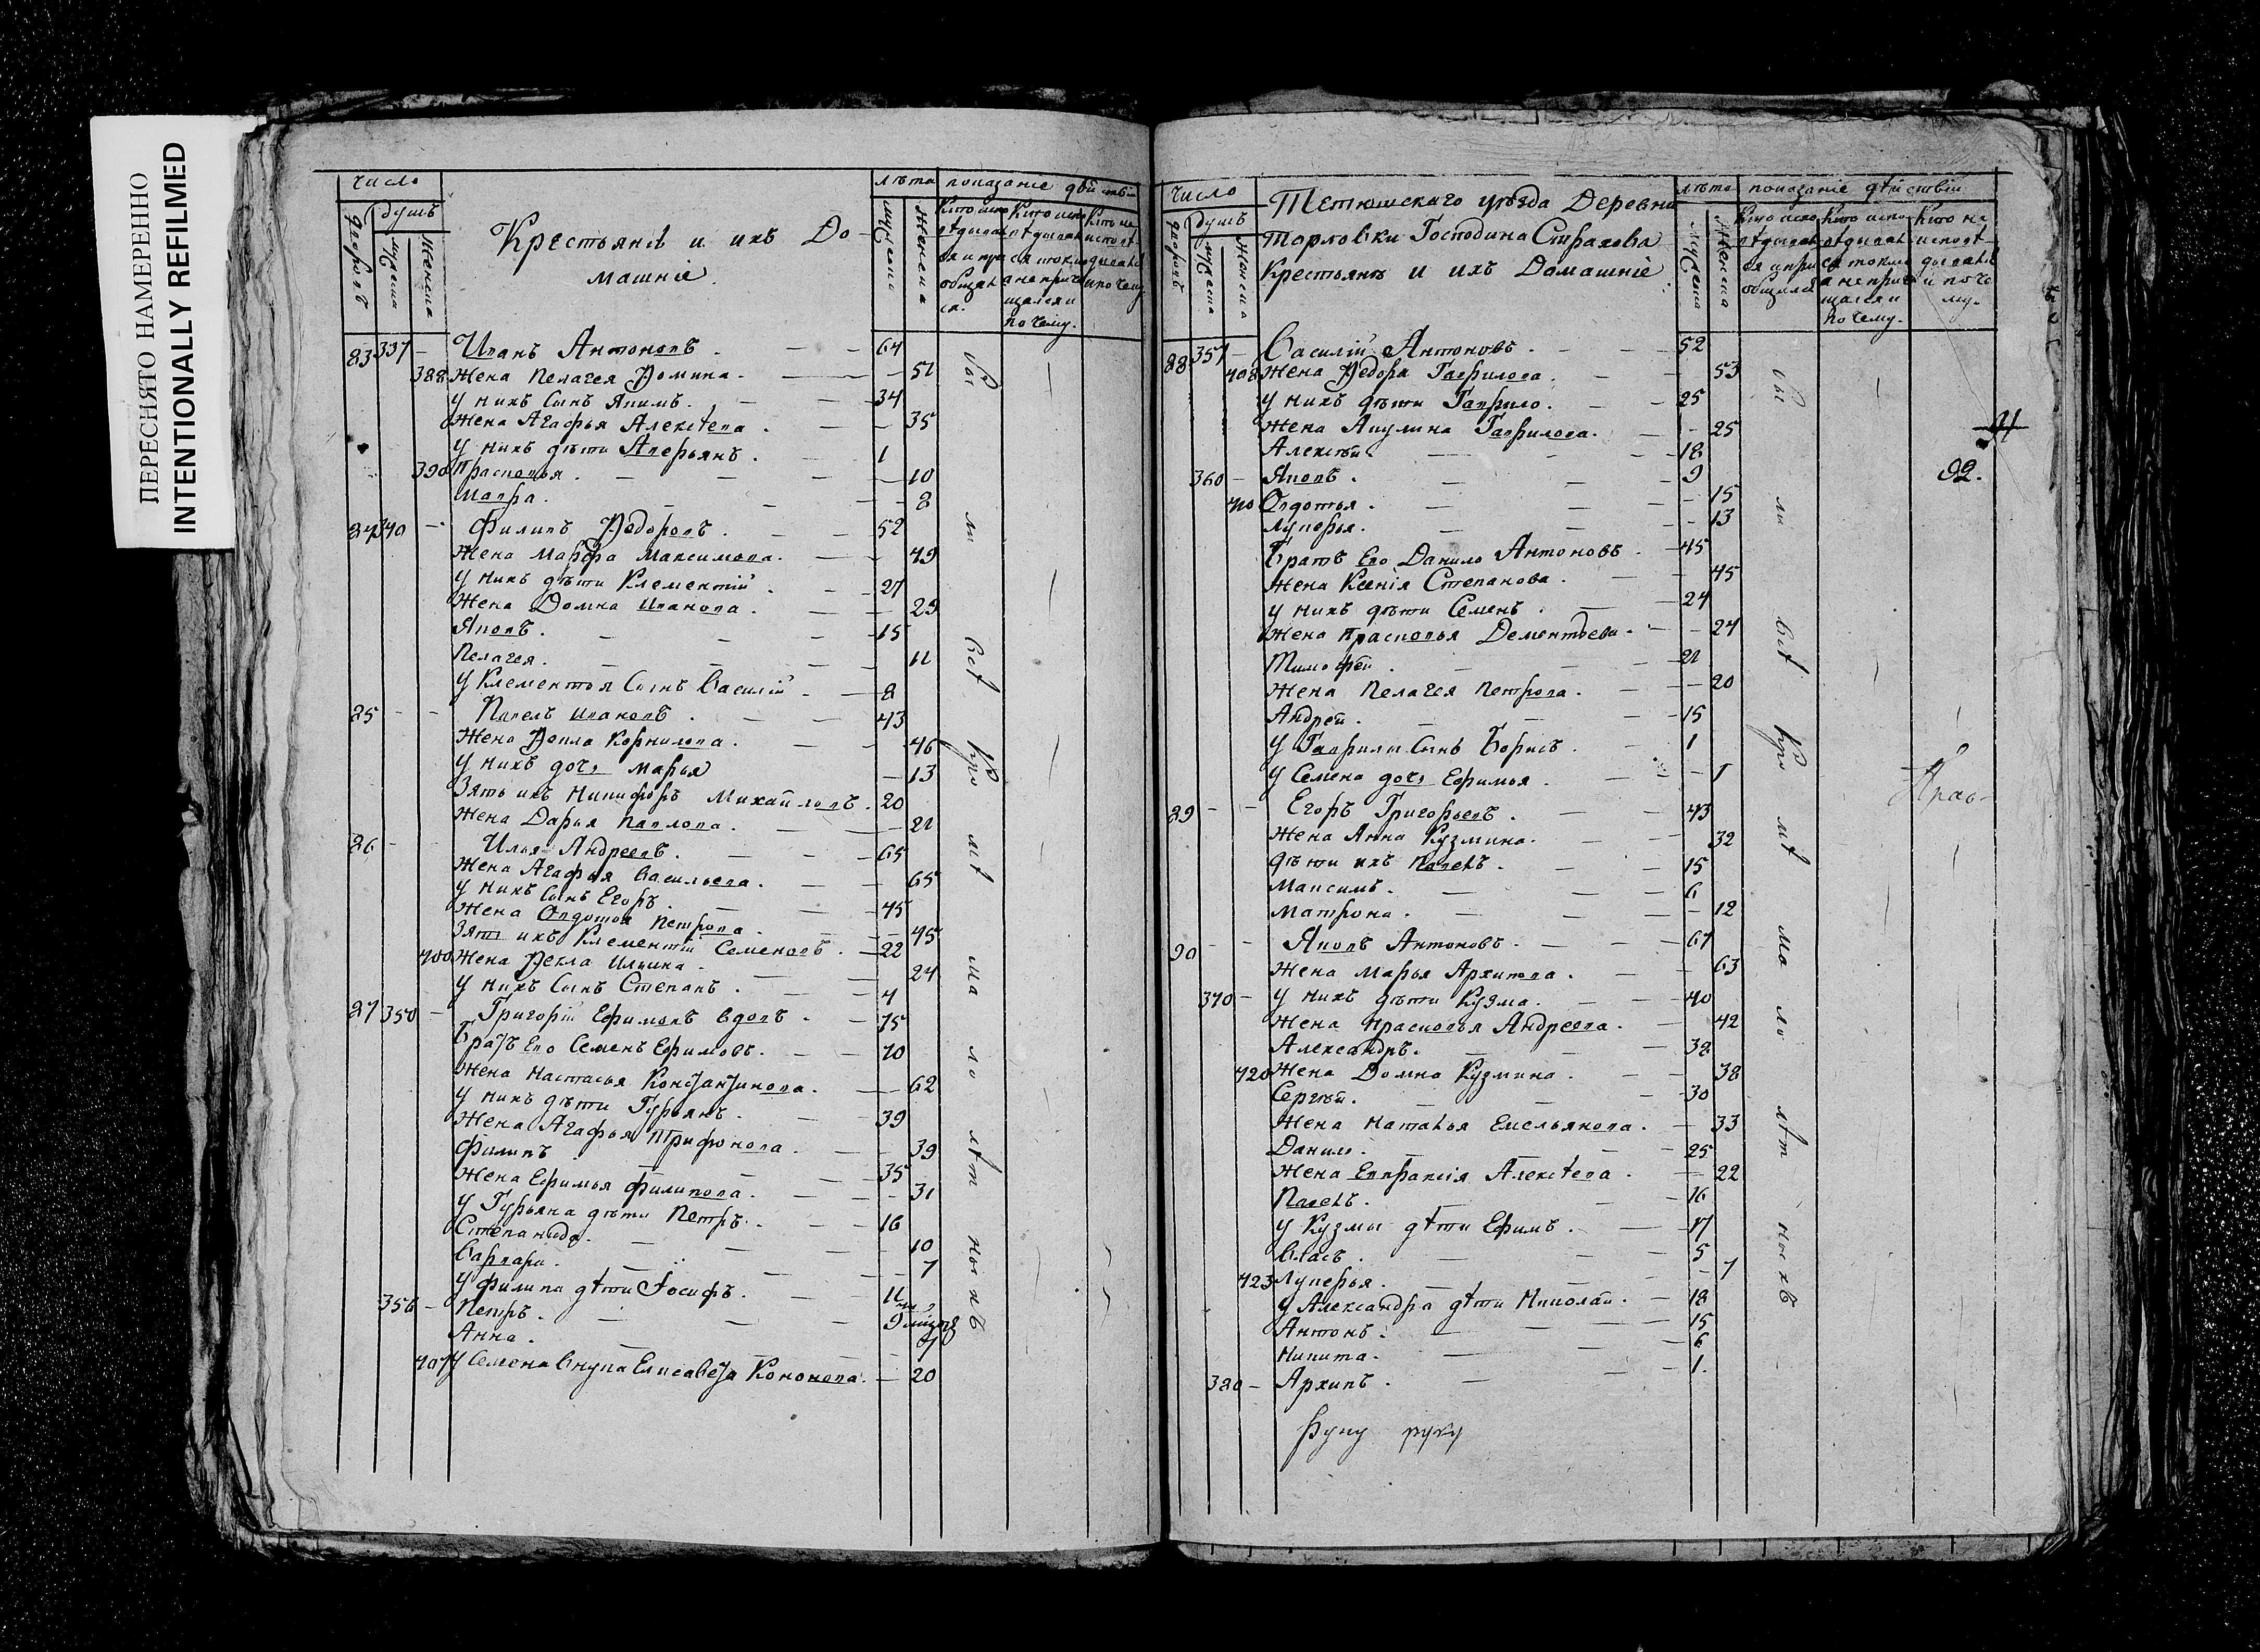 ПЕРЕСНЯТО НАМЕРЕННО
INTENTIONALLY REFILMED
число
лѣта показаніе дѣйствій
дворовъ
душъ
мужеска
женска
Крестьянѣ и ихъ До-
машніе.
мужеска
женска
83 337 – Иванъ Антоновъ. 64
388 Жена Пелагея Фомина. 51
у нихъ сынъ Якимъ. 34
Жена Агафья Алексѣева. 35
у нихъ дѣти Аверьянъ. 1
390 Прасковья. 10
Мавра. 8
84 340 – Филипъ Федоровъ. 52
Жена Марфа Максимова. 49
у нихъ дѣти Клементій. 27
Жена Домна Иванова. 29
Яковъ. 15
Пелагея. 11
у Клементья сынъ Василій. 8
85 – – Павелъ Ивановъ. 43
Жена Фекла Корнилова. 46
у нихъ дочь Марья 13
Зять ихъ Никифоръ Михайловъ. 20
Жена Дарья Павлова. 21
86 – Илья Андреевъ. 65
Жена Агафья Васильева. 65
у нихъ сынъ Егоръ. 45
Жена Овдотья Петрова. 45
Зять ихъ Клементій Семеновъ. 22
400 Жена Фекла Ильина. 24
у нихъ сынъ Степанъ. 4
87 350 – Григорій Ефимовъ вдовъ. 75
Братъ Его Семенъ Ефимовъ. 70
Жена Настасья Константинова. 62
у нихъ дѣти Гурьянъ. 39
Жена Агафья Трифонова. 39
Филипъ. 35
Жена Ефимья Филипова. 31
у Гурьяна дѣти Петръ. 16
Степанида. 10
Варвара. 7
у Филипа дѣти Іосифъ. 11
356 – Петръ. 9
Анна. 7
407 у Семена внука Елисавета Кононова. 20
Всѣ
число
Тетюшскаго уѣзда Деревни
Тарловки Господина Страхова
Крестьянѣ и ихъ Домашніе
лѣта показаніе дѣйствій
дворовъ
душъ
мужеска
женска
мужеска
женска
88 357 – Василій Антоновъ. 52
408 Жена Федора Гаврилова. 53
у нихъ дѣти Гаврило. 25
Жена Акулина Гаврилова. 25
Алексѣй 18
360 – Яковъ. 9
410 Овдотья. 15
Лукерья. 13
Братъ Его Данило Антоновъ. 45
Жена Ксенія Степанова. 45
у нихъ дѣти Семенъ. 24
Жена Прасковья Дементьева. 24
Тимофей. 21
Жена Пелагея Петрова. 20
Андрей. 15
у Гаврилы сынъ Борисъ. 1
у Семена дочь Ефимья. 1
89 – – Егоръ Григорьевъ. 43
Жена Анна Кузмина. 32
дѣти ихъ Павелъ. 15
Максимъ. 6
Матрона. 12
90 – – Яковъ Антоновъ. 67
Жена Марья Архипова. 63
370 – у нихъ дѣти Кузма. 40
Жена Прасковья Андреева. 42
Александръ. 38
420 Жена Домна Кузмина. 38
Сергѣй. 30
Жена Наталья Емельянова. 33
Данило. 25
Жена Евпраксія Алексѣева. 22
Павелъ. 16
у Кузмы дѣти Ефимъ. 17
Власъ. 5
423 Лукерья. 7
у Александра дѣти Николай. 18
Антонъ. 15
Никита. 6
380 – Архипъ. 1.
Всѣ
92.
руку